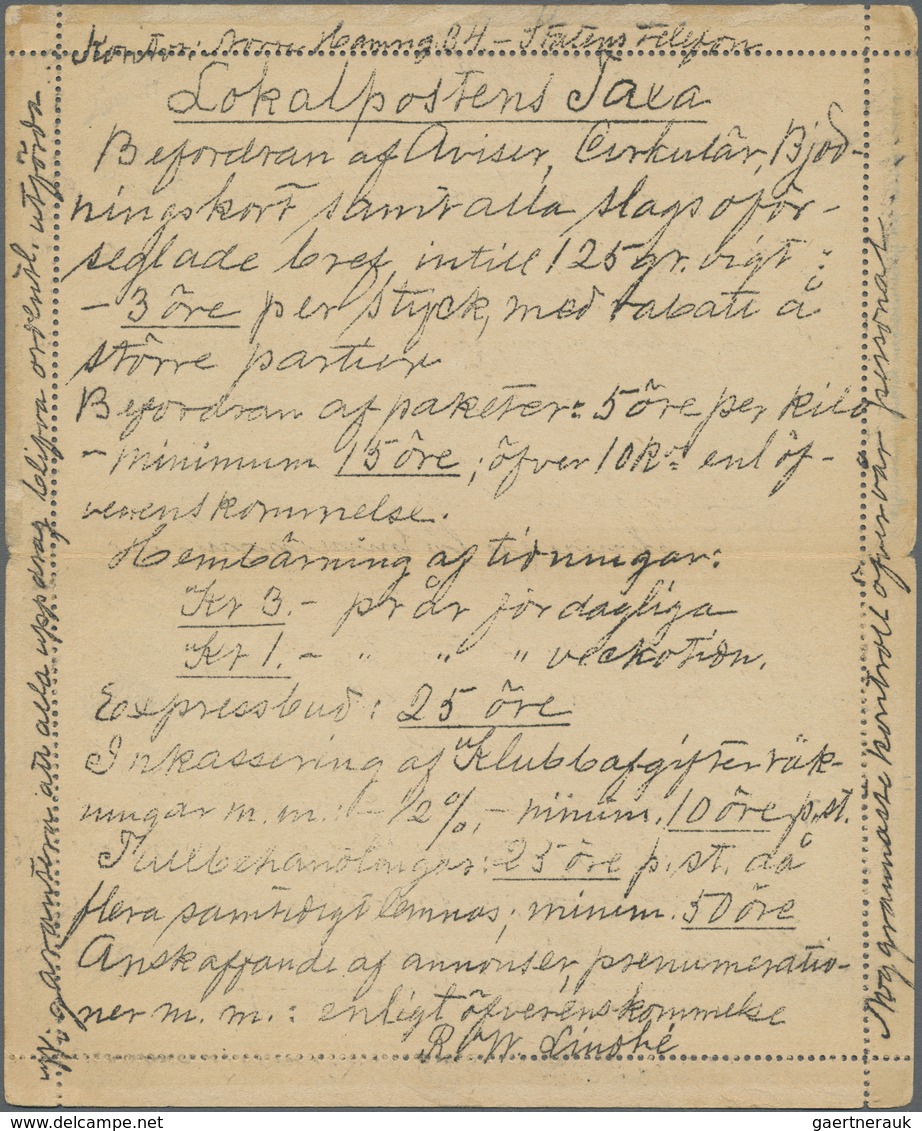 Kontor: Norra Hamng. 34. – Statens Telefon
Lokalpostens Taxa
Befordran af Aviser, Cirkulär, Bjud-
ningskort samt alla slags oför-
seglade bref intill 125 gr. vigt:
– 3 öre per styck, med rabatt å
större partier
Befordran af paketer: 5 öre per kilo
– minimum 15 öre; öfver 10 Ko. enl öf-
verenskommelse.
Hembärning af tidningar:
Kr 3.– pr år för dagliga
Kr 1.– " " " veckotidn.
Expressbud: 25 öre
Inkassering af Klubbafgifter räk-
ningar m. m.: 1–2%,– minim. 10 öre p. st.
Tullbehandlingar: 25 öre p. st. då
flera samtidigt lemnas; minim. 50 öre
Anskaffande af annonser, prenumeratio-
ner m. m.: enligt öfverenskommelse
R. W. Lindhé
Vi garantera att alla uppdrag blifva ordentl. utförda
Högramnasse Korrekt
gaertnerauk